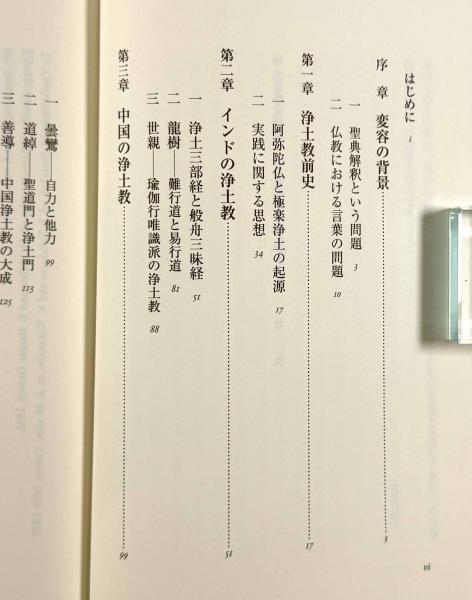 はじめに i
序章 変容の背景……3
一 聖典解釈という問題 3
二 仏教における言葉の問題 10
第一章 浄土教前史……17
一 阿弥陀仏と極楽浄土の起源 17
二 実践に関する思想 34
第二章 インドの浄土教……51
一 浄土三部経と般舟三昧経 51
二 龍樹——難行道と易行道 81
三 世親——瑜伽行唯識派の浄土教 88
第三章 中国の浄土教……99
一 曇鸞——自力と他力 99
二 道綽——聖道門と浄土門 113
三 善導——中国浄土教の大成 125
vi